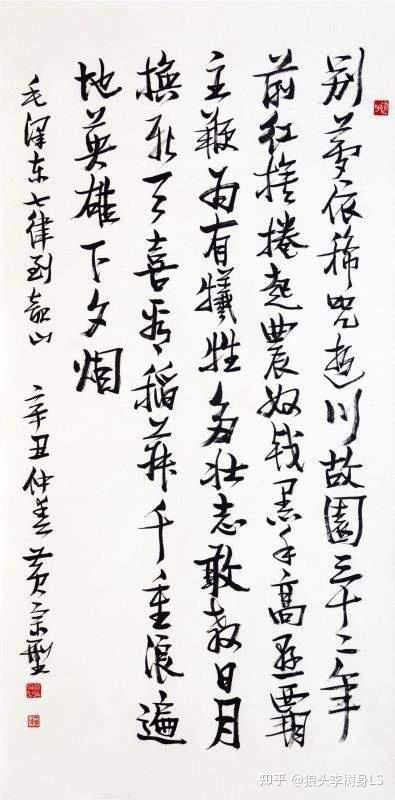 别梦依稀咒逝川故園三十二年
前红旗捲起農奴戟黑手高懸霸
主鞭为有犧牲多壮志敢教日月
换新天喜看稻菽千重浪遍
地英雄下夕烟
毛澤东七律到韶山 辛丑仲春 黄宗型
知乎 @狼头李树身LS